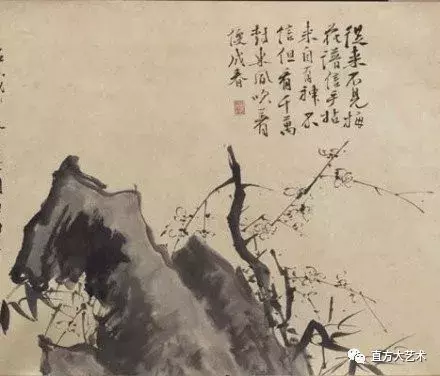 從来不見梅
花譜信手拈
来自有神不
信但看千萬
樹東風吹著
便成春
直方大艺术